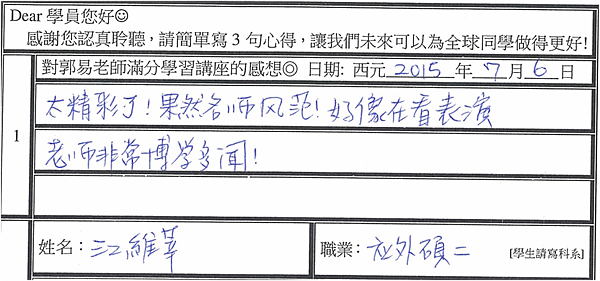 Dear 學員您好☺
感謝您認真聆聽，請簡單寫 3 句心得，讓我們未來可以為全球同學做得更好!
對郭易老師滿分學習講座的感想◎ 日期: 西元 2015 年 7 月 6 日
1
太精彩了！果然名师风范！好像在看表演
老师非常博学多闻！
姓名：江維莘
職業：应外碩二 [學生請寫科系]